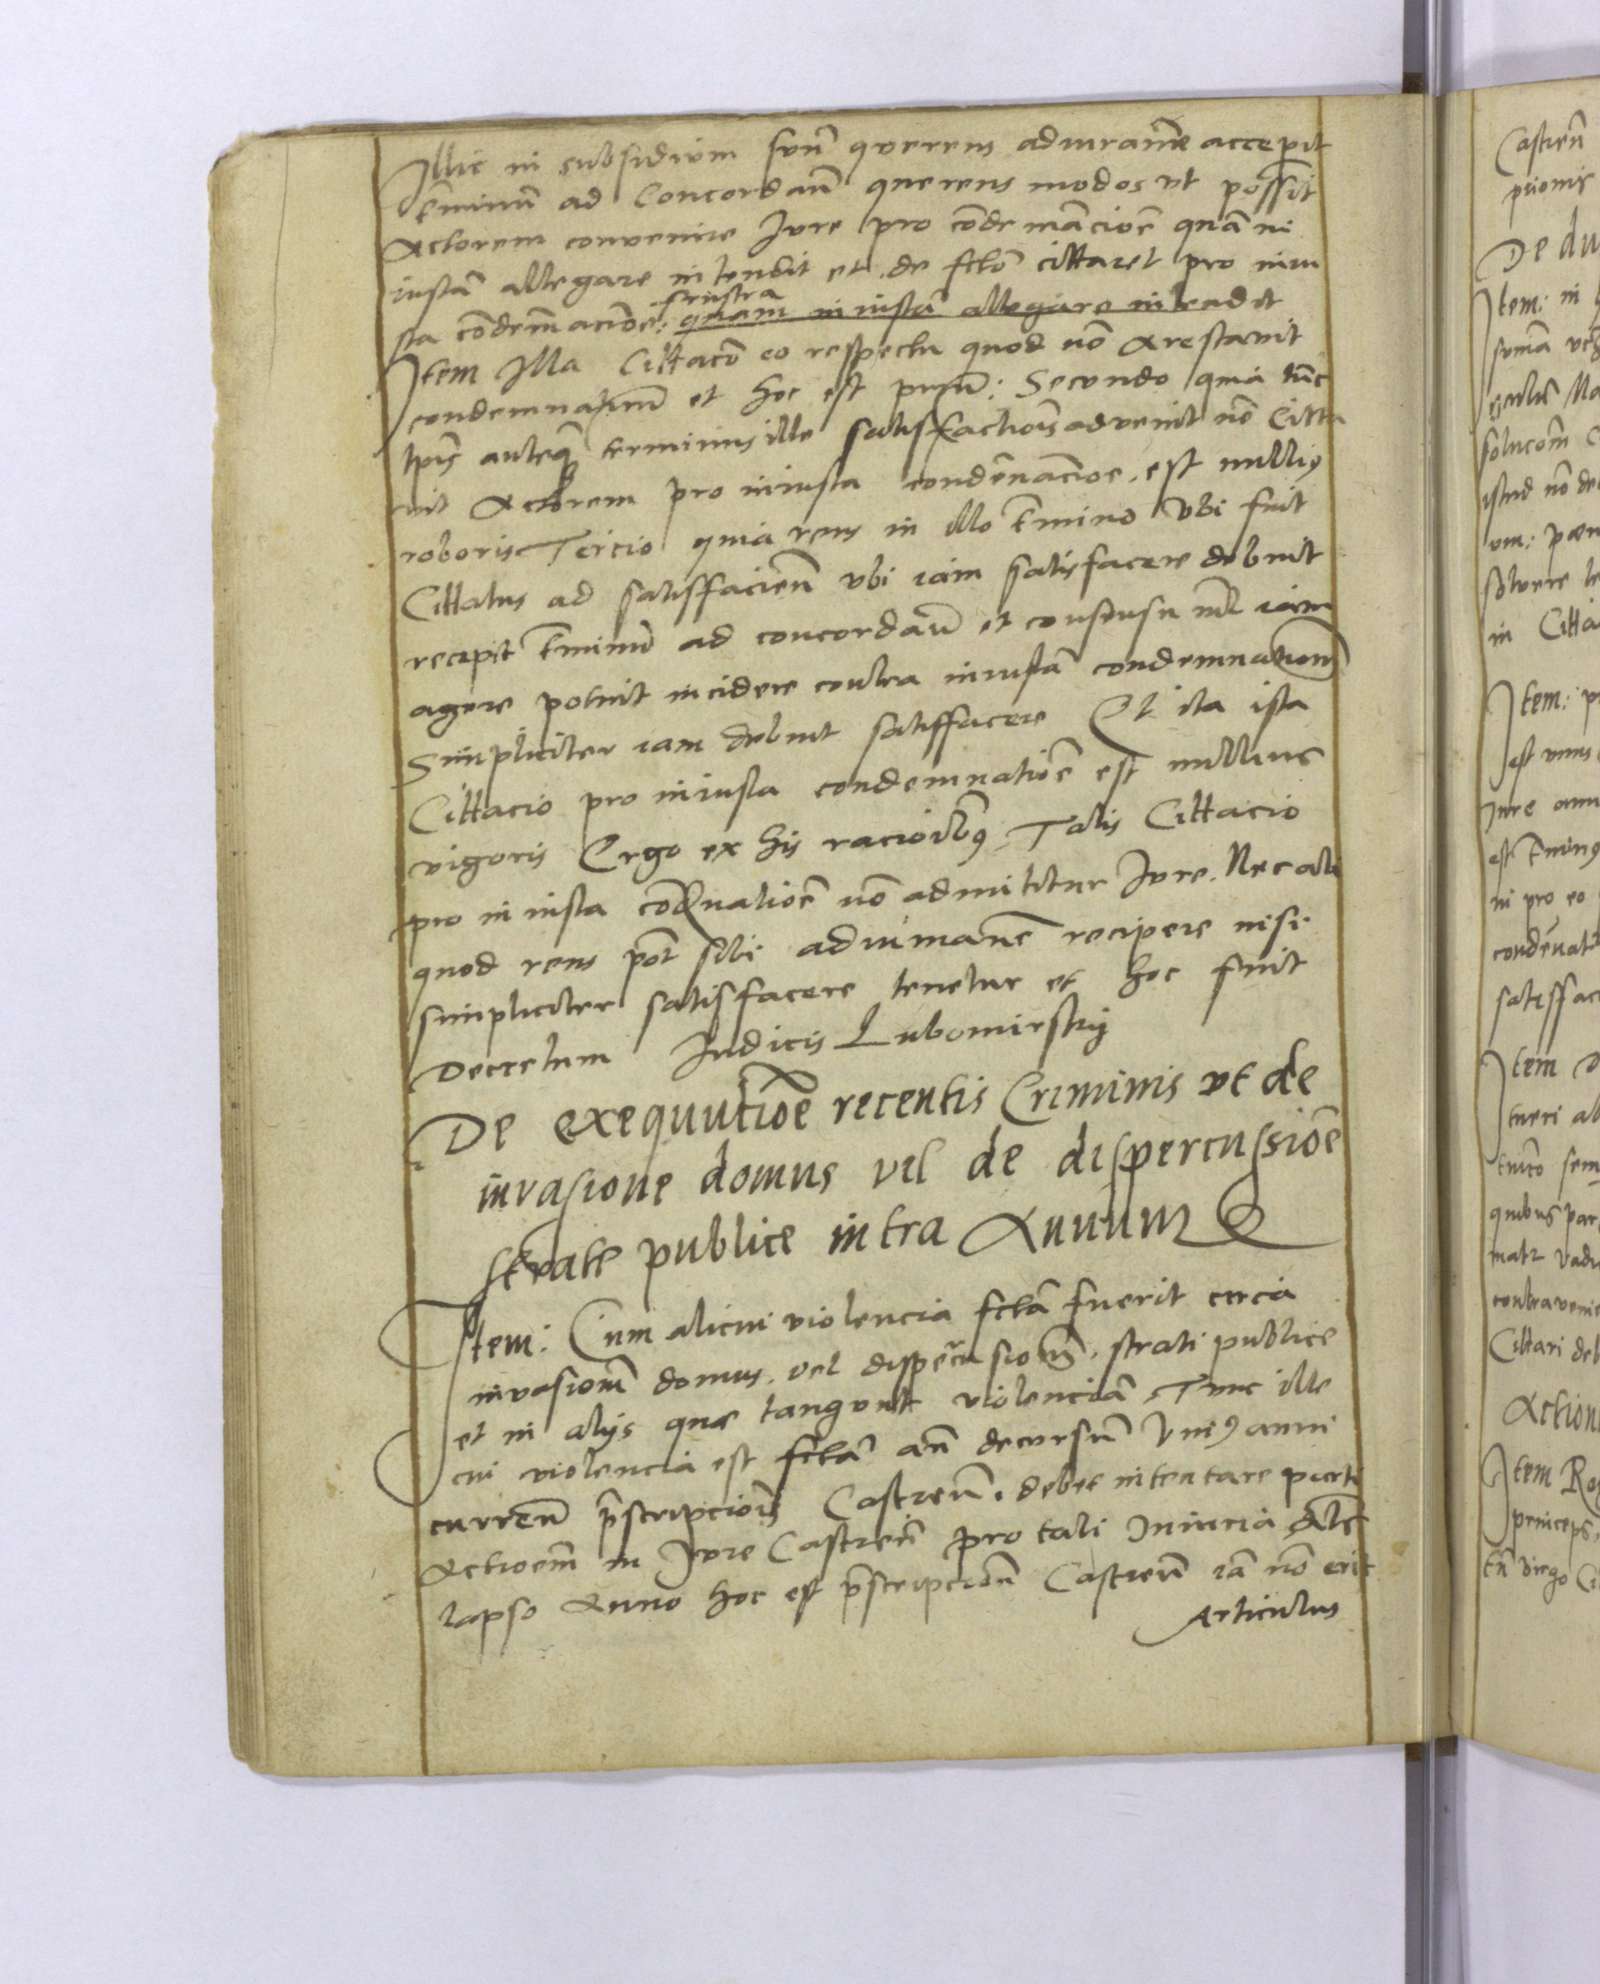 Illic in subsidium suũ querens adiuramen̄ accepit
t̃minũ ad Concordan̄ querens modos vt possit
Actorem convenire Iure pro cõdemnãcioẽ quã in
iustã allegare intendit et de fctõ cittaret pro iniu
sta cõdem̃nacioñe: frustra quam iniustã allegare intendit
Item Illa Cittacõ eo respectu quod nõ Arestavit
condemnatum̃ et hoc est primũ: Secundo quia tũc
tp̃is anteq̃ terminus ille satisfactiois̃ advenit nõ Citta
vit Actorem pro iniusta condẽnacioe, est nulliꝰ
roboris Tercio quia reus in illo t̃mino vbi fuit
Cittatus ad satisfacien̄ vbi iam satisfacere debuit
recepit t̃minũ ad concordan̄ et consensu iam
agere potuit incidere contra iniustã condemnationẽ
Simpliciter iam debuit satisfacere Et ita ista
Cittacio pro iniusta condemnatioẽ est nullius
vigoris Ergo ex his racioibꝰ Talis Cittacio
pro iniusta cõdnatioẽ nõ admititur Iure. Nec
quod reus põt sibi recipere nisi
simpliciter satisfacere tenetur et hoc fuit
Decretum Iudicis Lubomirskÿ
De exequutioẽ recentis Criminis vt de
invasione domus vel de dispercussioẽ
strate publice intra Annum
Item: Cum alicui violencia fctã fuerit circa
invasionẽ domus. vel dispercusionẽ. strati publice
et in alÿs que tangunt violenciã Tunc ille
cui violencia est fctã an̄ decursum Vniꝰ anni
curren̄ p̃scripciois̃ Castren̄. debet intentare parti
Actioem̃ in Iure Castren̄ pro tali Iniuria Als
lapso Anno hoc est p̃scripcion̄ Castren̄ iã nõ erit
Articulus
Castren̄
De du
Item: in
Item: p
est vnus
Iure
ni pro eo
condẽnat
satisfac
Item
quibus par
contra venie
Cittari deb
Action
Item
princeps